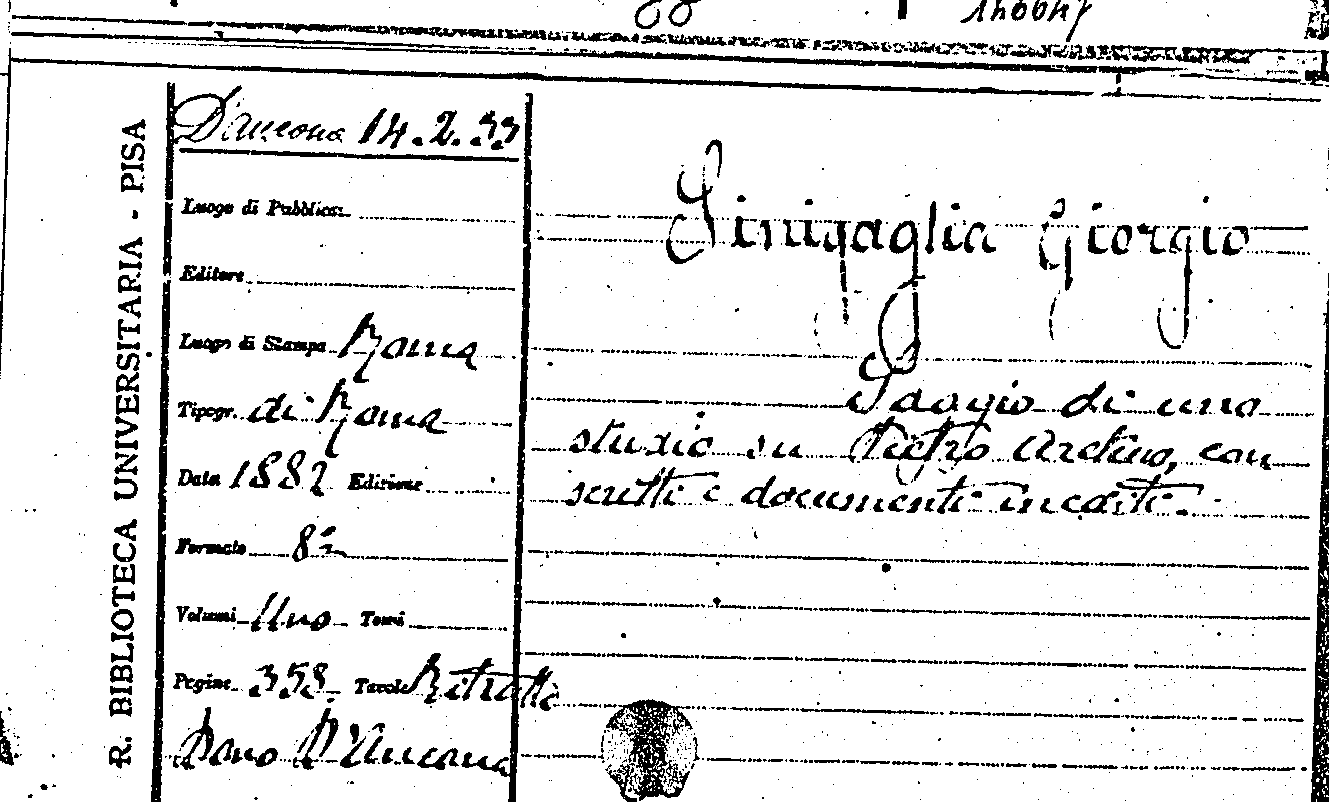 R. BIBLIOTECA UNIVERSITARIA - PISA
D'Ancona 14.2.33
Luogo di Pubblicaz.
Editore
Luogo di Stampa Roma
Tipogr. di Roma
Data 1882 Edizione
Formato 8º
Volumi Uno Tomi
Pagine 353 Tavole Ritratti
Dono D'Ancona
Sinigaglia Giorgio
Saggio di uno
studio su Pietro Aretino, con
scritti e documenti inediti.